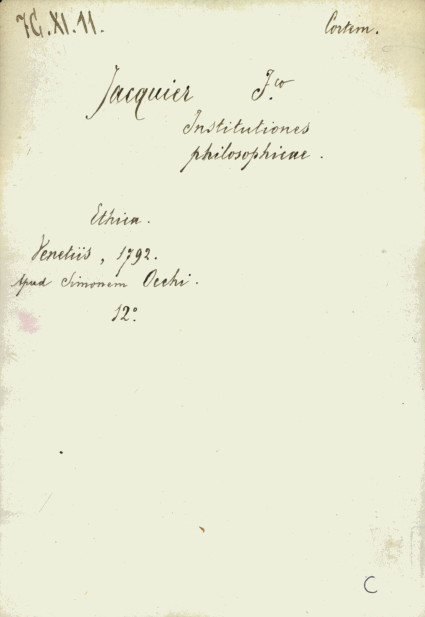 7G.XI.11.
Cortem.
Jacquier F.co
Institutiones
philosophicae.
Ethica.
Venetiis, 1792.
Apud Simonem Occhi.
12°
C